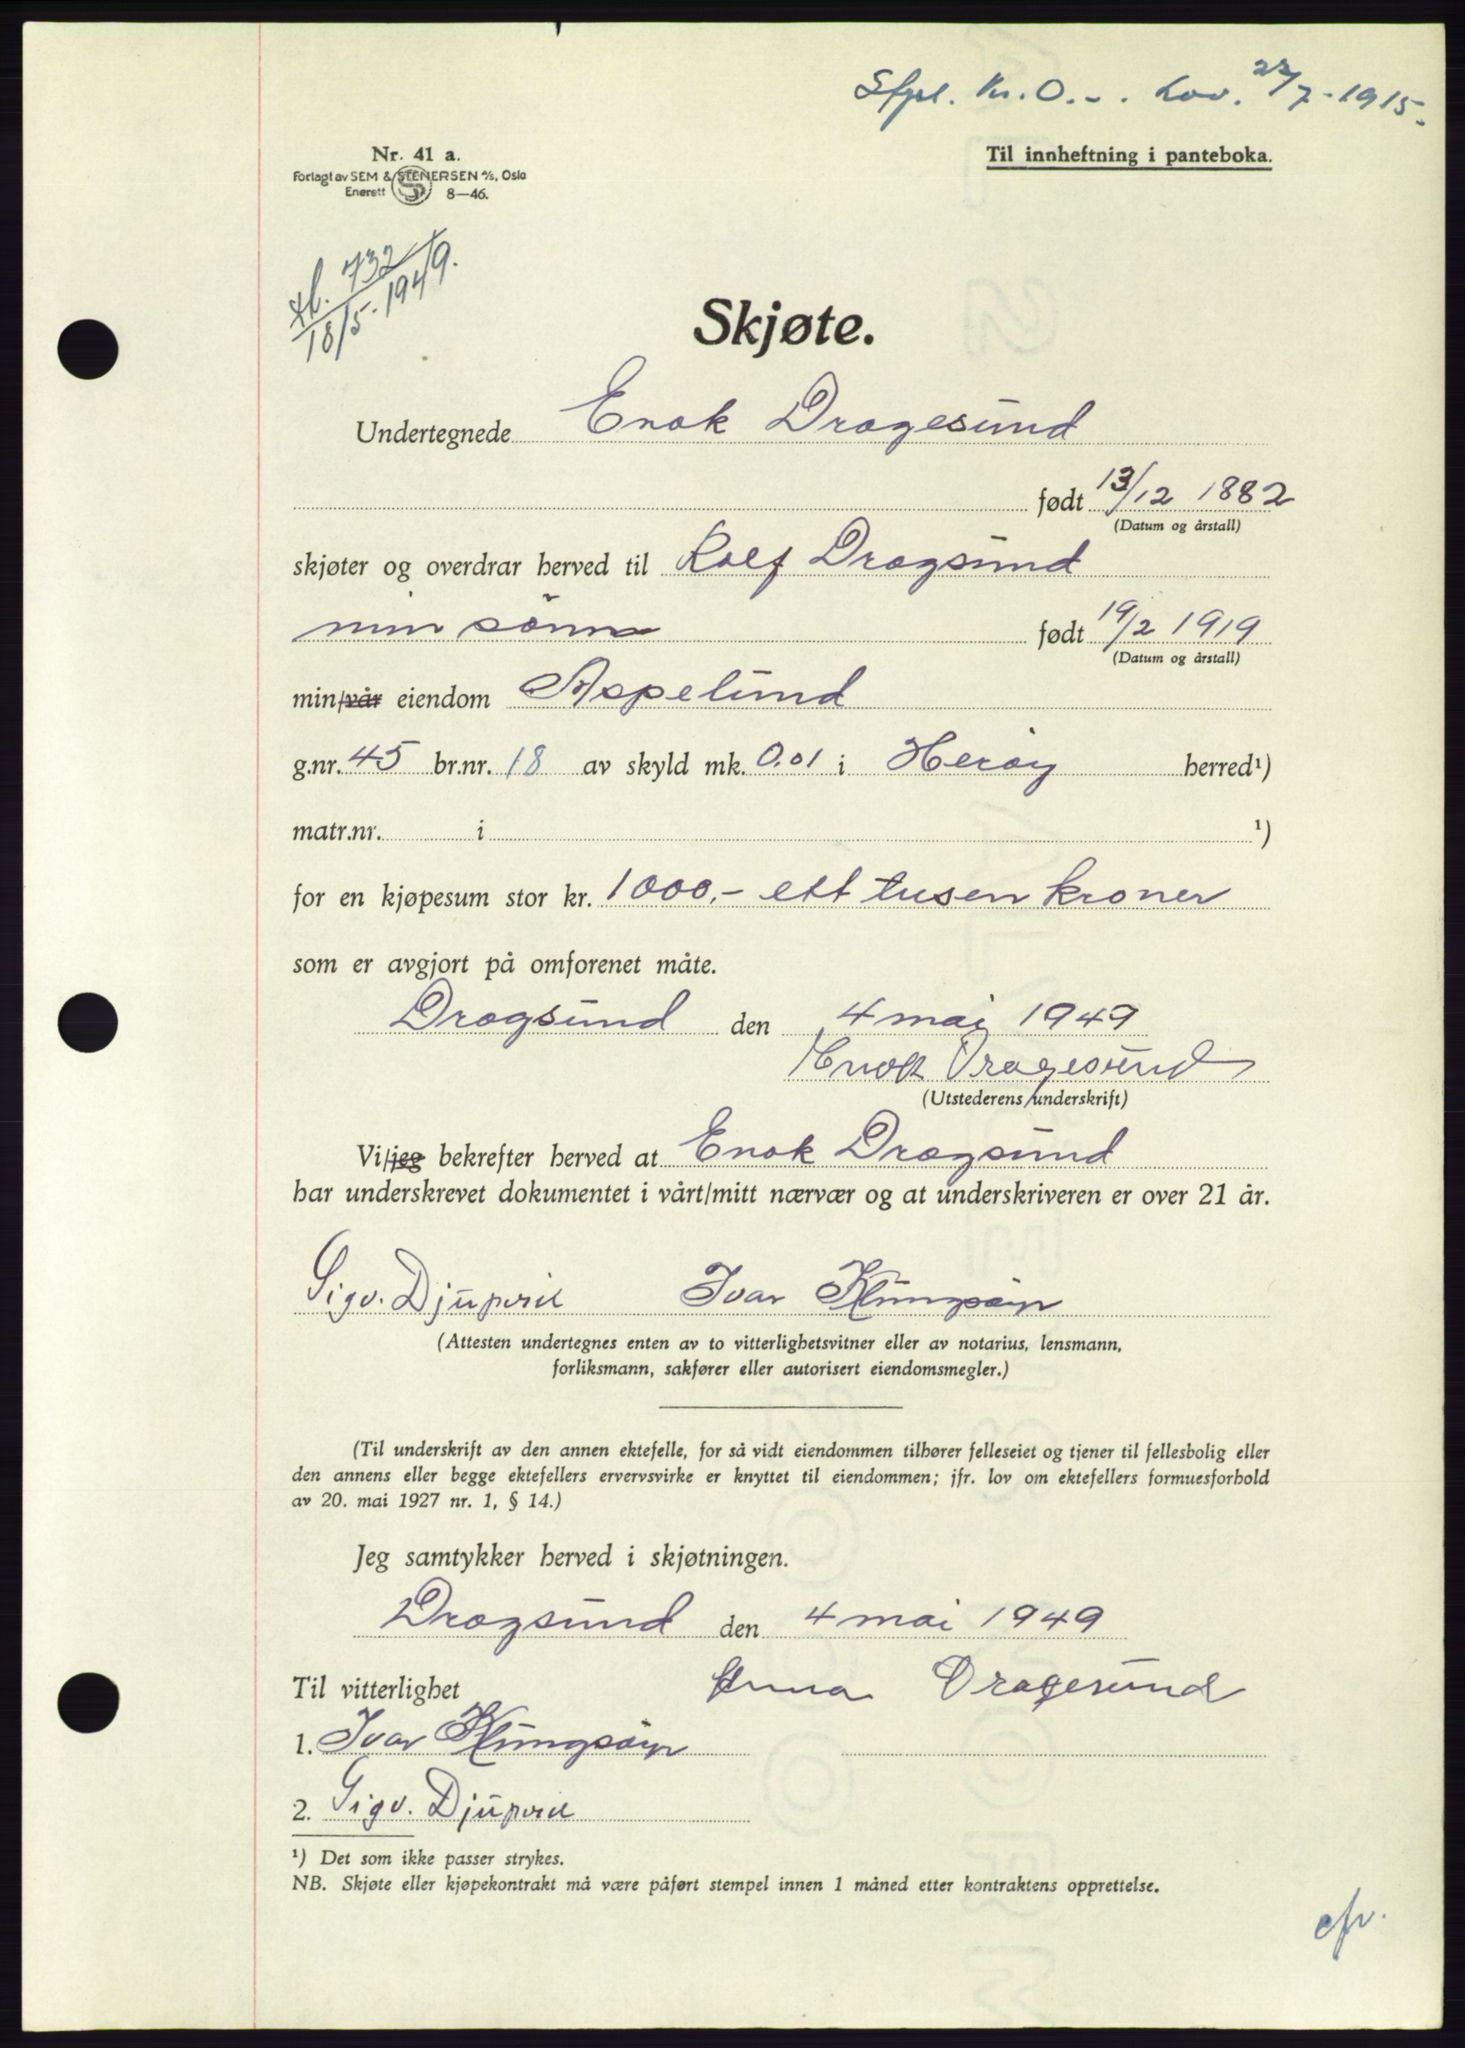 Sfpl. Kr. 0.-. Lov. 22/7-1915.
Nr. 41 a.
Forlagt av SEM & STENERSEN A/S, Oslo
Enerett 8—46.
Til innheftning i panteboka.
732
18/5-1949.
Skjøte.
Undertegnede Enok Dragesund
født 13/12 1882
(Datum og årstall)
skjøter og overdrar herved til Rolf Dragsund
min sønn født 19/2 1919
(Datum og årstall)
min/vår eiendom Aspelund
g.nr. 45 br.nr. 18 av skyld mk. 0.01 i Herøy herred¹)
matr.nr. i ¹)
for en kjøpesum stor kr. 1000,- ett tusen kroner
som er avgjort på omforenet måte.
Dragsund den 4 mai 1949
Enok Dragesund
(Utstederens underskrift)
Vi/jeg bekrefter herved at Enok Dragsund
har underskrevet dokumentet i vårt/mitt nærvær og at underskriveren er over 21 år.
Sigv. Djupvik Ivar Klungsøyr
(Attesten undertegnes enten av to vitterlighetsvitner eller av notarius, lensmann,
forliksmann, sakfører eller autorisert eiendomsmegler.)
(Til underskrift av den annen ektefelle, for så vidt eiendommen tilhører felleseiet og tjener til fellesbolig eller
den annens eller begge ektefellers ervervsvirke er knyttet til eiendommen; jfr. lov om ektefellers formuesforhold
av 20. mai 1927 nr. 1, § 14.)
Jeg samtykker herved i skjøtningen.
Dragsund den 4 mai 1949
Til vitterlighet Anna Dragesund
1. Ivar Klungsøyr
2. Sigv. Djupvik
¹) Det som ikke passer strykes.
NB. Skjøte eller kjøpekontrakt må være påført stempel innen 1 måned etter kontraktens opprettelse.